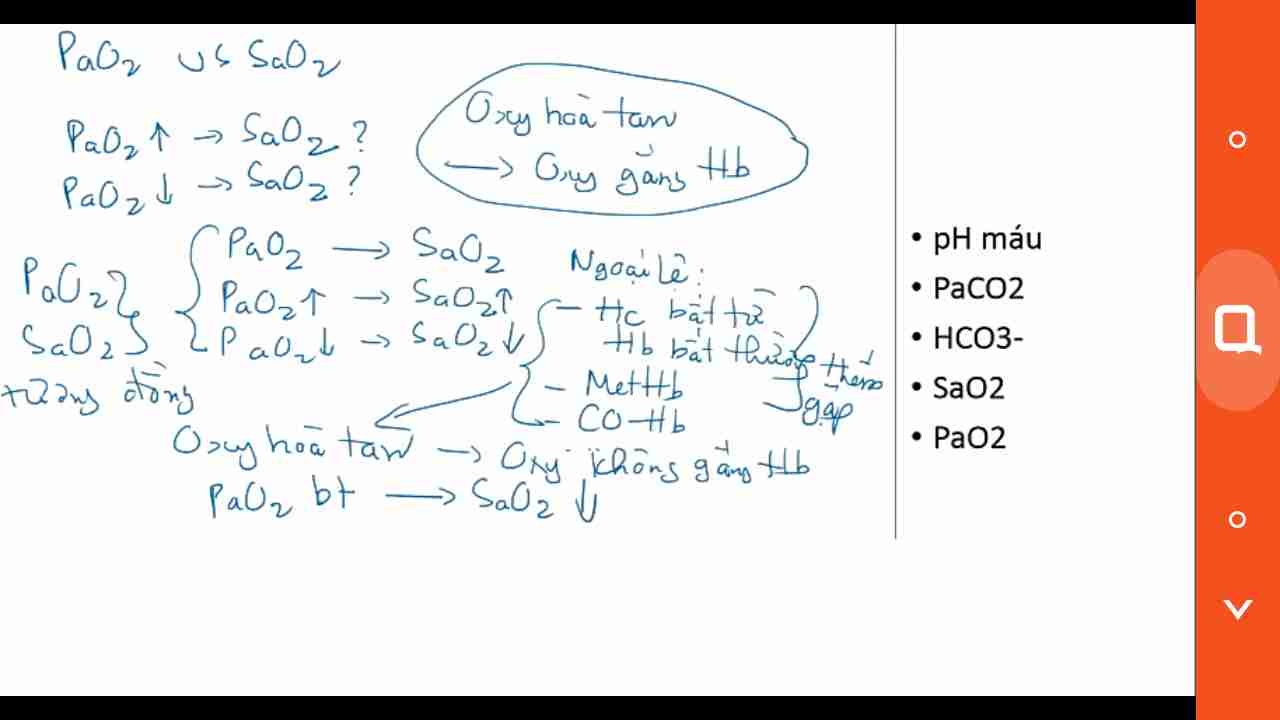 PaO2 vs SaO2
PaO2 ↑ → SaO2 ?
PaO2 ↓ → SaO2 ?
Oxy hoà tan
→ Oxy gắng Hb
PaO2
SaO2
tương đồng
PaO2 → SaO2
PaO2 ↑ → SaO2 ↑
PaO2 ↓ → SaO2 ↓
Ngoại lệ:
- HC bất từ
Hb bất thường
- MetHb
- CO-Hb
gặp
Oxy hoà tan → Oxy không gắng Hb
PaO2 bt → SaO2 ↓
• pH máu
• PaCO2
• HCO3-
• SaO2
• PaO2